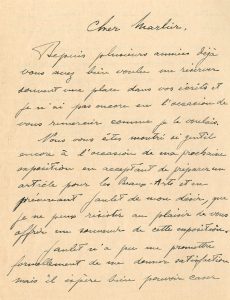 Cher Marlier,
Depuis plusieurs années déjà
vous avez bien voulu me réserver
souvent une place dans vos écrits et
je n'ai pas encore eu l'occasion de
vous remercier comme je le voulais.
Nous vous êtes montré si gentil
encore à l'occasion de ma prochaine
exposition en acceptant de préparer un
article pour les Beaux-Arts et en
prévenant Janlet de mon désir, que
je ne peux résister au plaisir de vous
offrir un souvenir de cette exposition.
Janlet n'a pu me promettre
formellement de me donner satisfaction
mais il espère bien pouvoir caser